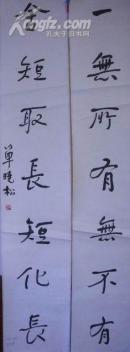 一無所有無不有
舍短取長短化長
孔夫子旧书网